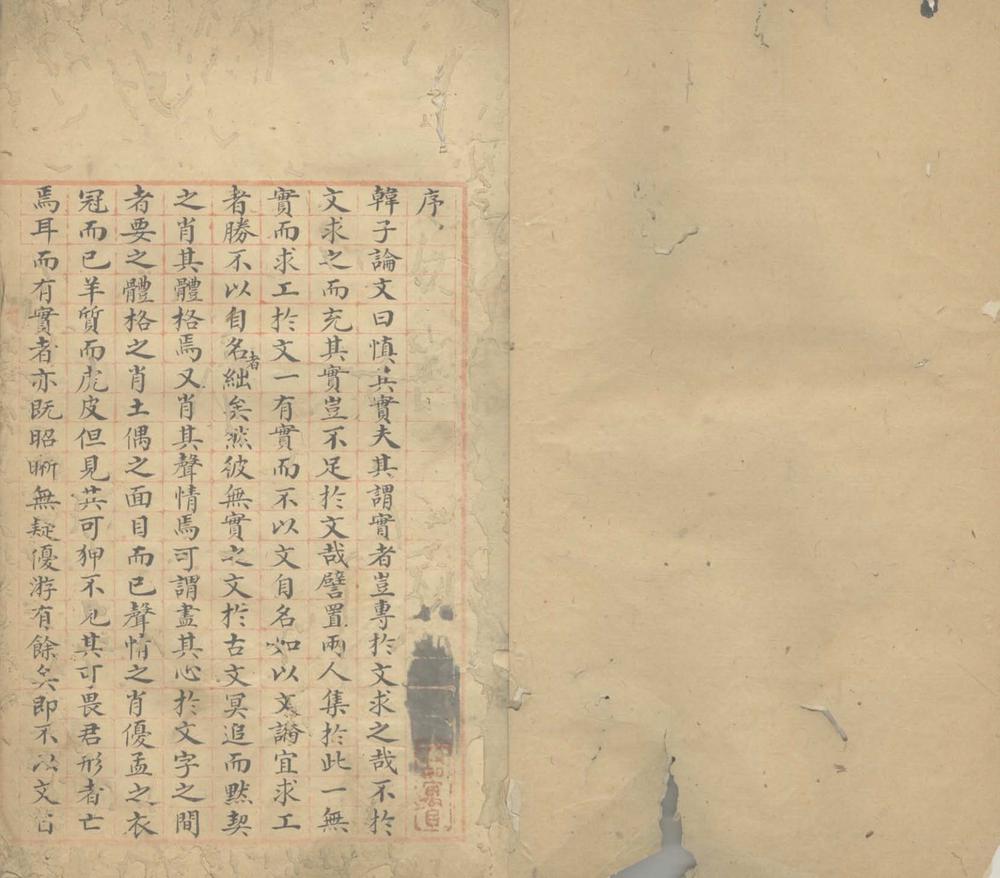 序
韓子論文曰慎其實夫其謂實者豈專於文求之哉不於
文求之而充其實豈不足於文哉譬置兩人集於此一無
實而求工於文一有實而不以文自名如以文論宜求工
者勝不以自名者絀矣然彼無實之文於古文冥追而默契
之肖其體格焉又肖其聲情焉可謂盡其心於文字之間
者要之體格之肖土偶之面目而已聲情之肖優孟之衣
冠而已羊質而虎皮但見其可狎不見其可畏君形者亡
焉耳而有實者亦既昭晰無疑優游有餘矣即不以文